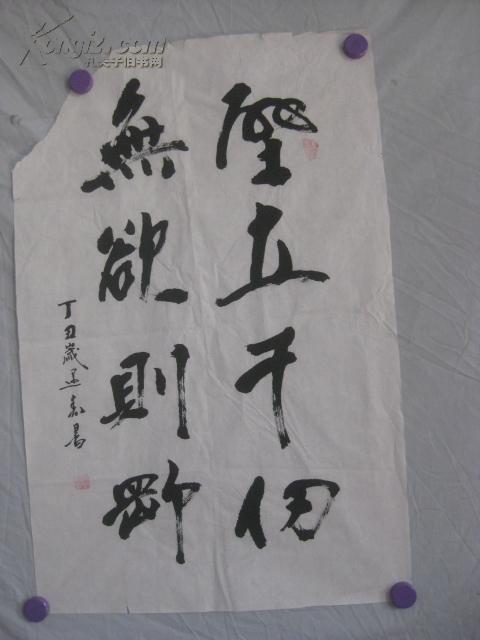 壁立千仞
無欲則剛
丁丑歲孟春書
Kongfz.com
孔夫子旧书网